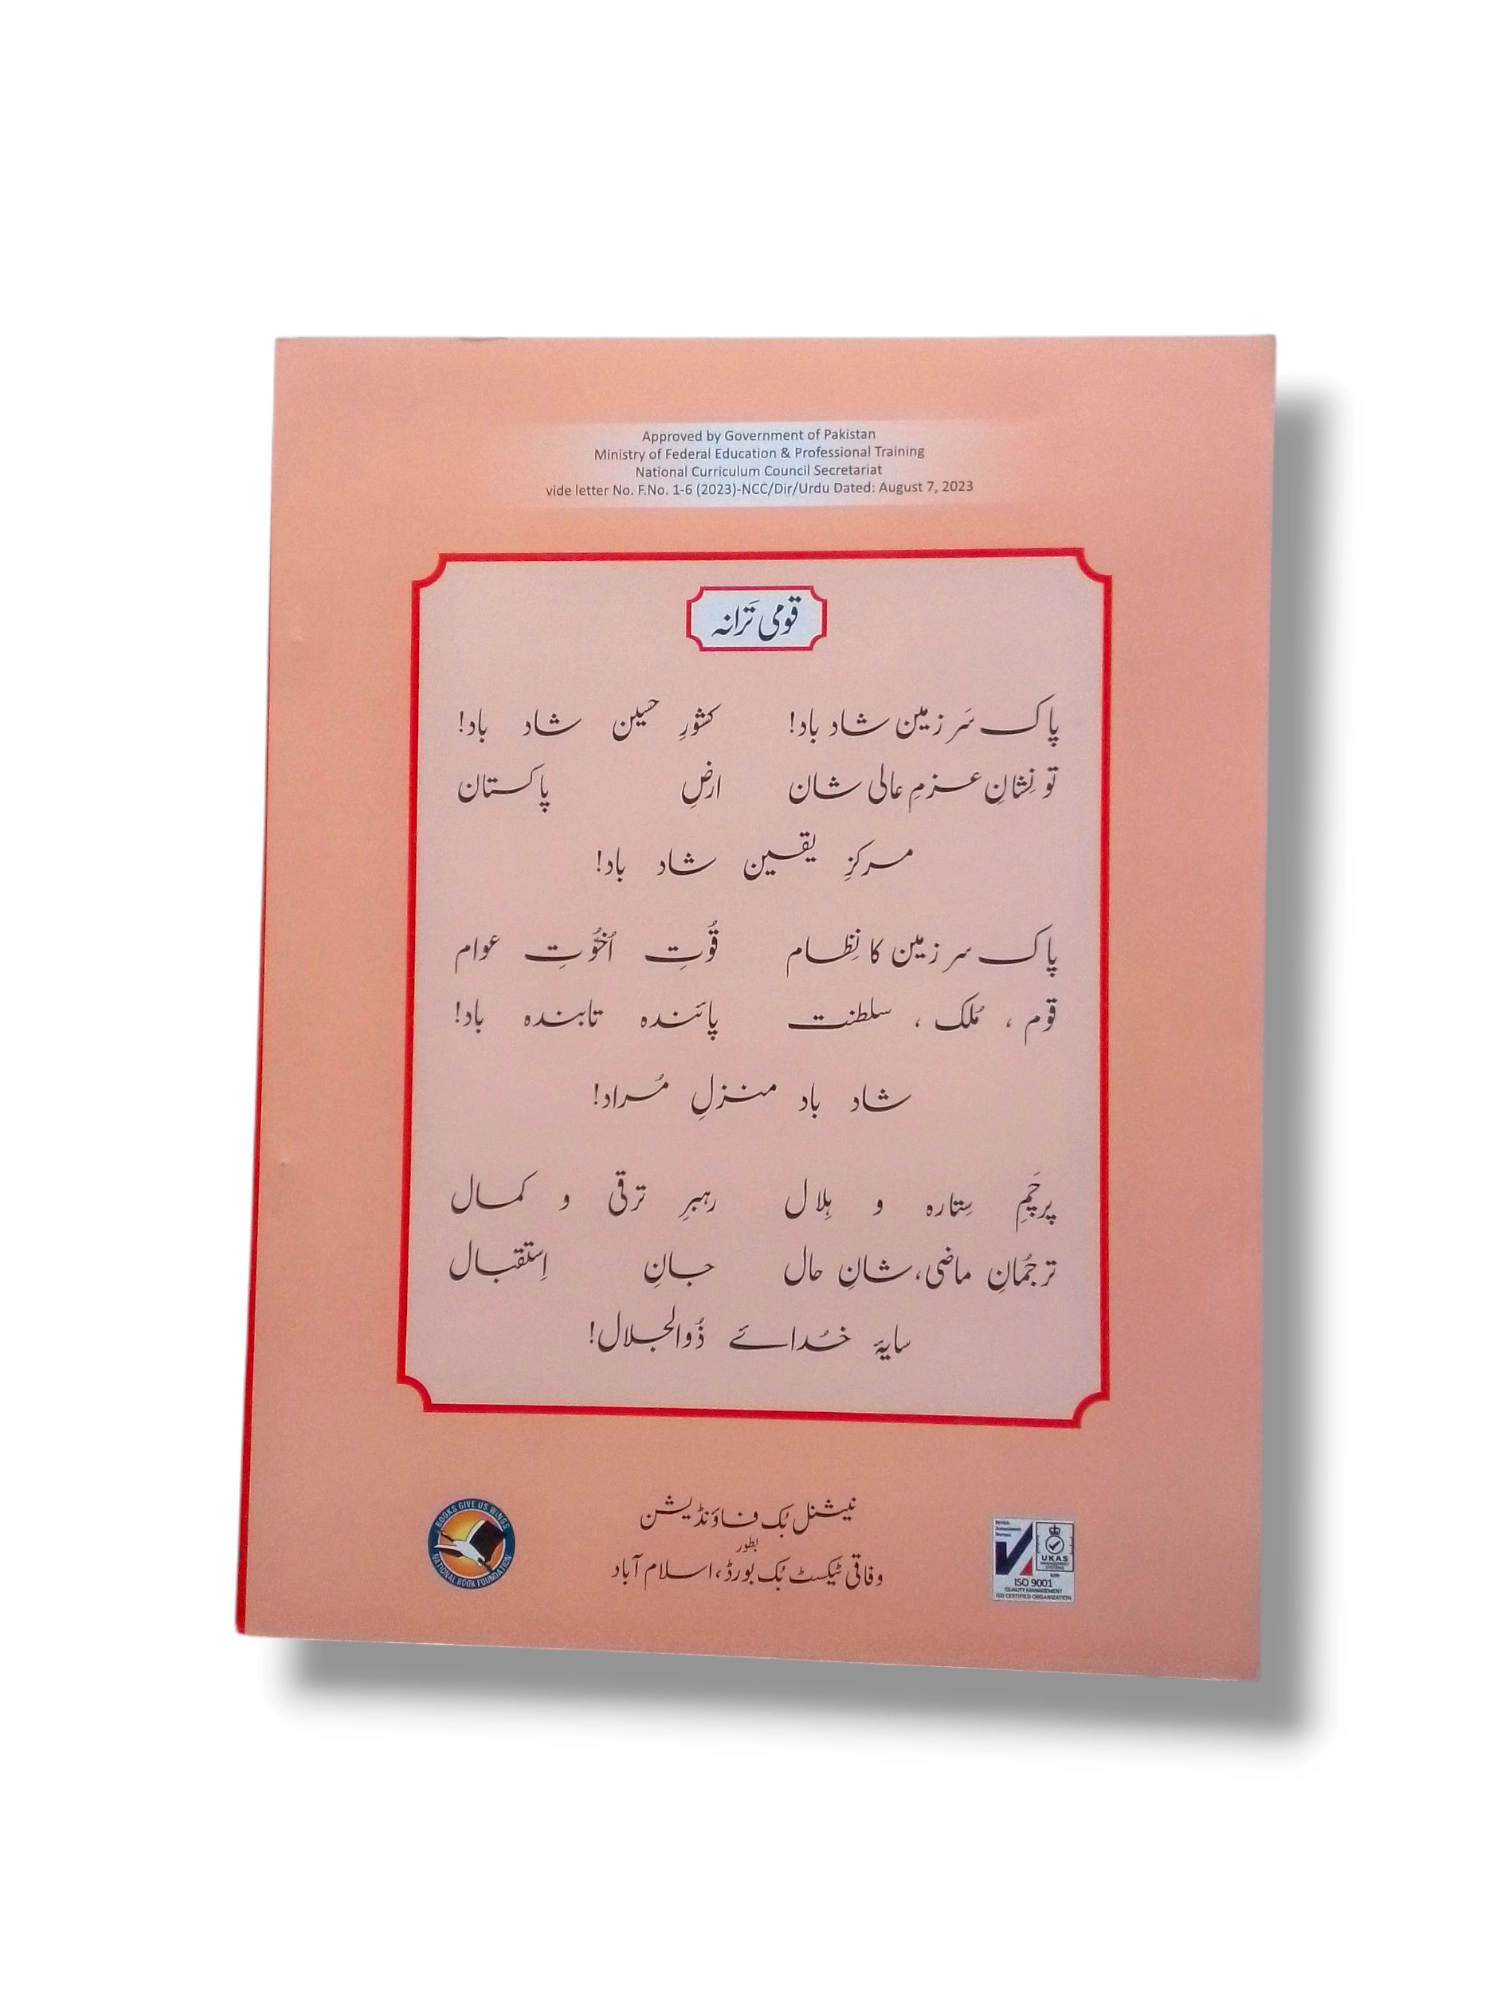 Approved by Government of Pakistan
Ministry of Federal Education & Professional Training
National Curriculum Council Secretariat
vide letter No. F.No. 1-6 (2023)-NCC/Dir/Urdu Dated: August 7, 2023
قومی تَرانہ
پاک سَرزمین شاد باد! کشورِ حسین شاد باد!
تو نِشانِ عزمِ عالی شان ارضِ پاکستان
مرکزِ یقین شاد باد!
پاک سرزمین کا نِظام قُوّتِ اُخُوّتِ عوام
قوم ، مُلک ، سلطنت پائندہ تابندہ باد!
شاد باد منزلِ مُراد!
پرچَمِ سِتارہ و ہِلال رہبرِ ترقی و کمال
ترجُمانِ ماضی، شانِ حال جانِ اِستقبال
سایۂ خُدائے ذُوالجلال!
نیشنل بُک فاؤنڈیشن
بطور
وفاقی ٹیکسٹ بُک بورڈ، اسلام آباد
BOOKS GIVE US WINGS
NATIONAL BOOK FOUNDATION
UKAS
MANAGEMENT SYSTEMS
ISO 9001
QUALITY MANAGEMENT
ISO CERTIFIED ORGANIZATION